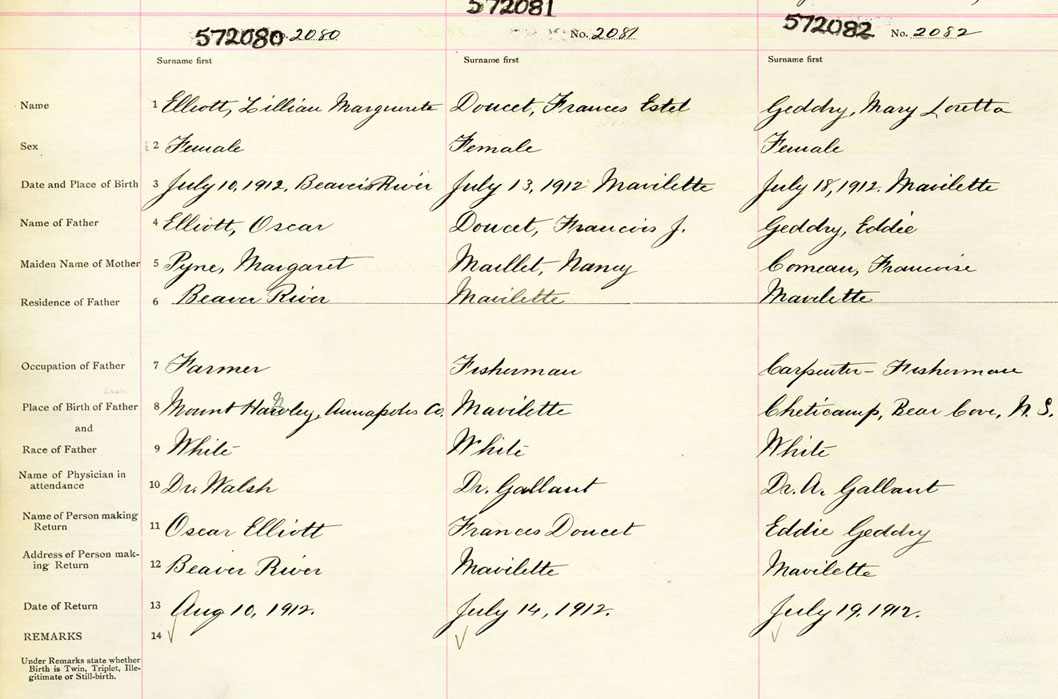 572081
572080 2080 No. 2081 572082 No. 2082
Surname first Surname first Surname first
Name 1 Elliott, Lillian Marguerite Doucet, Frances Estel Geddry, Mary Loretta
Sex 2 Female Female Female
Date and Place of Birth 3 July 10, 1912, Beaver River July 13, 1912 Mavilette July 18, 1912. Mavilette
Name of Father 4 Elliott, Oscar Doucet, Francois J. Geddry, Eddie
Maiden Name of Mother 5 Pyne, Margaret Maillet, Nancy Comeau, Francoise
Residence of Father 6 Beaver River Mavilette Mavilette
Occupation of Father 7 Farmer Fisherman Carpenter - Fisherman
Place of Birth of Father 8 Mount Annapolis Co. Mavilette Cheticamp, Bear Cove, N.S.
and
Race of Father 9 White White White
Name of Physician in
attendance 10 Dr. Walsh Dr. Gallant Dr. A. Gallant
Name of Person making
Return 11 Oscar Elliott Frances Doucet Eddie Geddry
Address of Person mak-
ing Return 12 Beaver River Mavilette Mavilette
Date of Return 13 Aug 10, 1912. July 14, 1912. July 19, 1912.
REMARKS 14
Under Remarks state whether
Birth is Twin, Triplet, Ille-
gitimate or Still-birth.